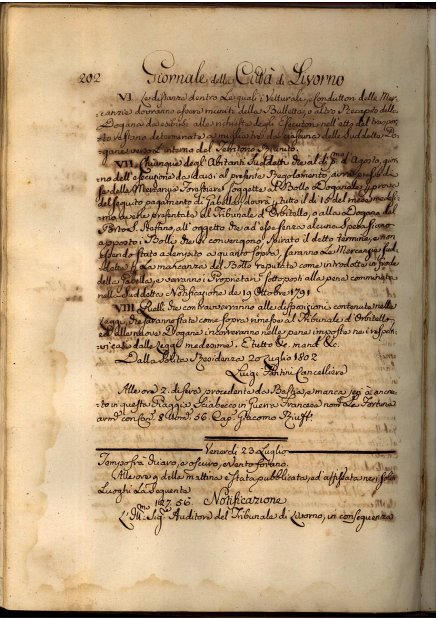 202 Giornale della Città di Livorno
VI. Le distanze dentro le quali i Vetturali, e Conduttori delle Mer-
canzie dovranno essere muniti della Bulletta, o altro Recapito delle
Dogana da esibirsi alle richieste degl'Esecutori nell'atto del traspor-
to restano determinate a miglia tre da ciascuna delle suddette Do-
gane verso l'interno del Territorio Riunito.
VII. Chiunque degl'Abitanti suddetti che al dì p.º d'Agosto, gior
no dell'esecuzione da darsi al presente Regolamento, avrà presso di
se delle Mercanzie Forestiere soggette al Bollo Doganale, e prova
del seguito pagamento di Gabelle, dovrà a tutto il dì 15 del mese medesi-
mo averle presentate al Tribunale d'Orbitello, o alla Dogana del
Porto S. Stefano, all'oggetto che ad esse senza alcuna spesa siano
apposti i Bolli che si convengono, spirato il detto termine, e non
essendo stato adempito a quanto sopra, saranno le Mercanzie sud-
dette per la mancanza del Bollo reputate come introdotte in frode
della Gabella, e saranno i Proprietari sottoposti alla pena comminata
nella suddetta Notificazione de' 19 Ottobre 1791
VIII. Quelli che contravverranno alle disposizioni contenute nelle
Leggi che saranno state come sopra rimesse al Tribunale d'Orbitello,
e alla nuova Dogana incorreranno nelle pene imposte nei rispet-
tivi casi dalle Leggi medesime. E tutto &c. mand. &c.
Dalla Solita Residenza 20 Luglio 1802
Luigi Fantini Cancelliere
Alle ore 2. di sera procedente da Bastia, e manca jeri è ancora-
to in questa Spiaggia
arm. con Can. 8 Uom. 56. Cap. Giacomo
Venerdì 23 Luglio
Tempo fra chiaro, e oscuro, e vento forano.
Alle ore 9 della mattina è stata pubblicata, ed affissata nei soliti
Luoghi la seguente
Notificazione
L'Ill. Sig. Auditore del Tribunale di Livorno, in conseguenza